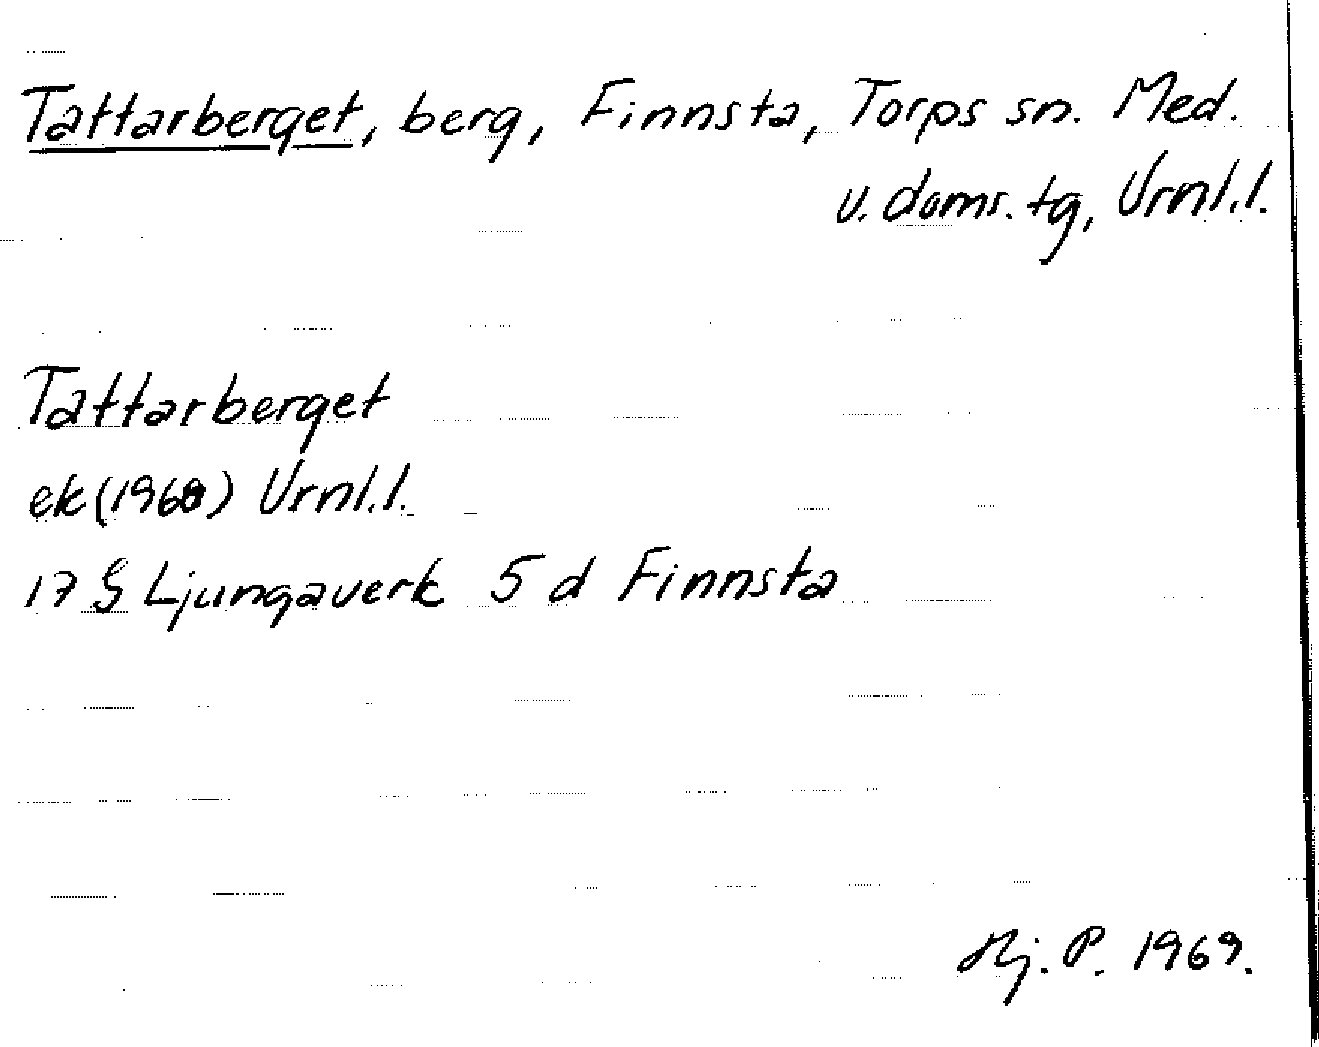 Tattarberget, berg, Finnsta, Torps sn. Med.
v. doms. tg, Vrnl.l.
Tattarberget
ek (1968) Vrnl.l.
17 G Ljungaverk 5 d Finnsta
Hj. P. 1969.